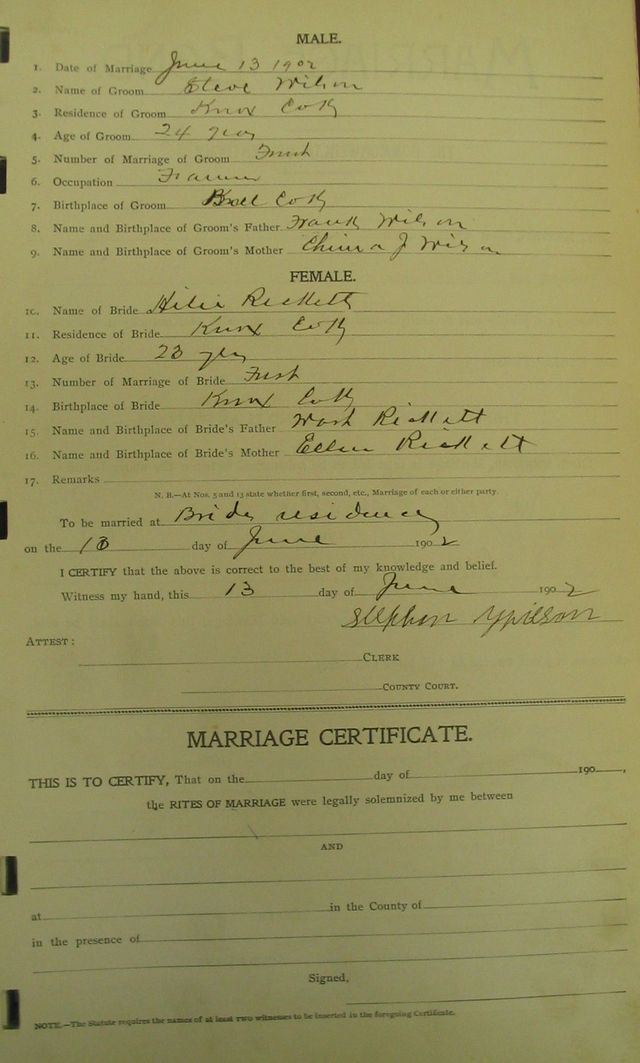 MALE.
1. Date of Marriage June 13 1902
2. Name of Groom Steve Wilson
3. Residence of Groom Knox Co Ky
4. Age of Groom 24 years
5. Number of Marriage of Groom First
6. Occupation Farmer
7. Birthplace of Groom Bell Co Ky
8. Name and Birthplace of Groom's Father Frank Wilson
9. Name and Birthplace of Groom's Mother J Wilson
FEMALE.
10. Name of Bride Rickett
11. Residence of Bride Knox Co Ky
12. Age of Bride 23 yrs
13. Number of Marriage of Bride First
14. Birthplace of Bride Knox Co Ky
15. Name and Birthplace of Bride's Father Wash Rickett
16. Name and Birthplace of Bride's Mother Ellen Rickett
17. Remarks
N. B.—At Nos. 5 and 13 state whether first, second, etc., Marriage of each or either party.
To be married at Brides residence
on the 13 day of June 1902
I CERTIFY that the above is correct to the best of my knowledge and belief.
Witness my hand, this 13 day of June 1902
Stephen Wilson
ATTEST:
CLERK
COUNTY COURT.
MARRIAGE CERTIFICATE.
THIS IS TO CERTIFY, That on the day of 190 ,
the RITES OF MARRIAGE were legally solemnized by me between
AND
at in the County of
in the presence of
Signed,
NOTE.—The Statute requires the names of at least two witnesses to be inserted in the foregoing Certificate.